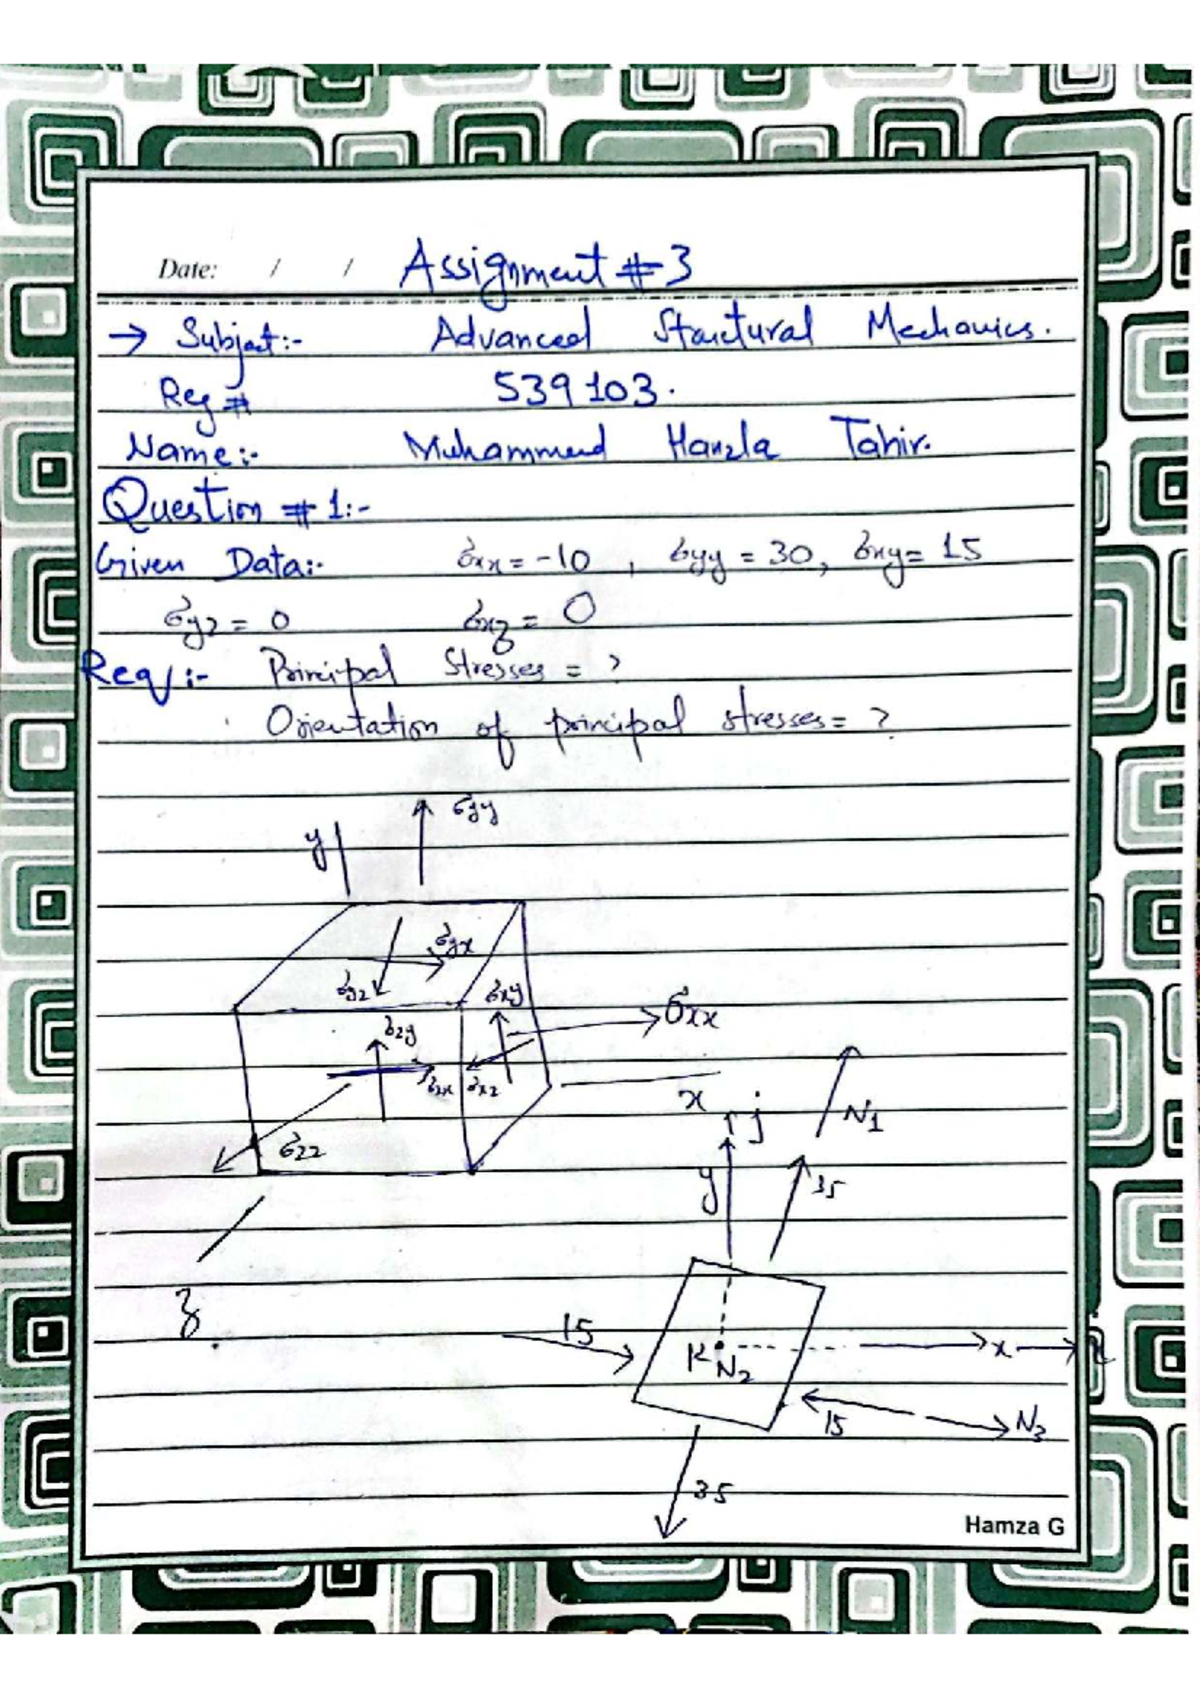 Date: / / Assignment # 3
→ Subject:- Advanced Structural Mechanics.
Reg # 539103.
Name:- Muhammad Hanzla Tahir.
Question # 1:-
Given Data:- σxx = -10 , σyy = 30, σxy = 15
σyz = 0 σxz = 0
Req:- Principal Stresses = ?
Orientation of principal stresses = ?
σyy
y
σyx
σyz σxy
σxx
σzy
σzx σxz
x
j
N1
σzz
y
35
z
15
K N2
x
i
15
N3
35
Hamza G